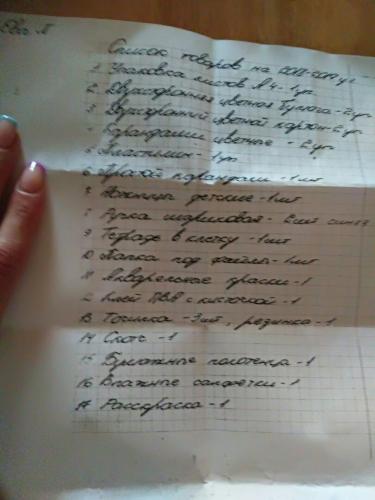 Список товаров на 2018-2019 уг
1. Упаковка листов А4 - 1 уп.
2. Двухсторонняя цветная бумага - 2 уп
3. Двухсторонний цветной картон - 2 уп
4. Карандаши цветные - 2 уп
5. Пластилин - 1 уп.
6. Простой карандаш - 1 шт
Ножницы детские - 1 шт
Ручка шариковая - 2 шт синяя
9. Тетрадь в клетку - 1 шт
10 Папка под файлы - 1 шт
11 Акварельные краски - 1
Клей ПВА с кисточкой - 1
13 Точилка - 3 шт, резинка - 1
14 Скотч - 1
15 Бумажные полотенца - 1
16 Влажные салфетки - 1
17 Раскраска - 1